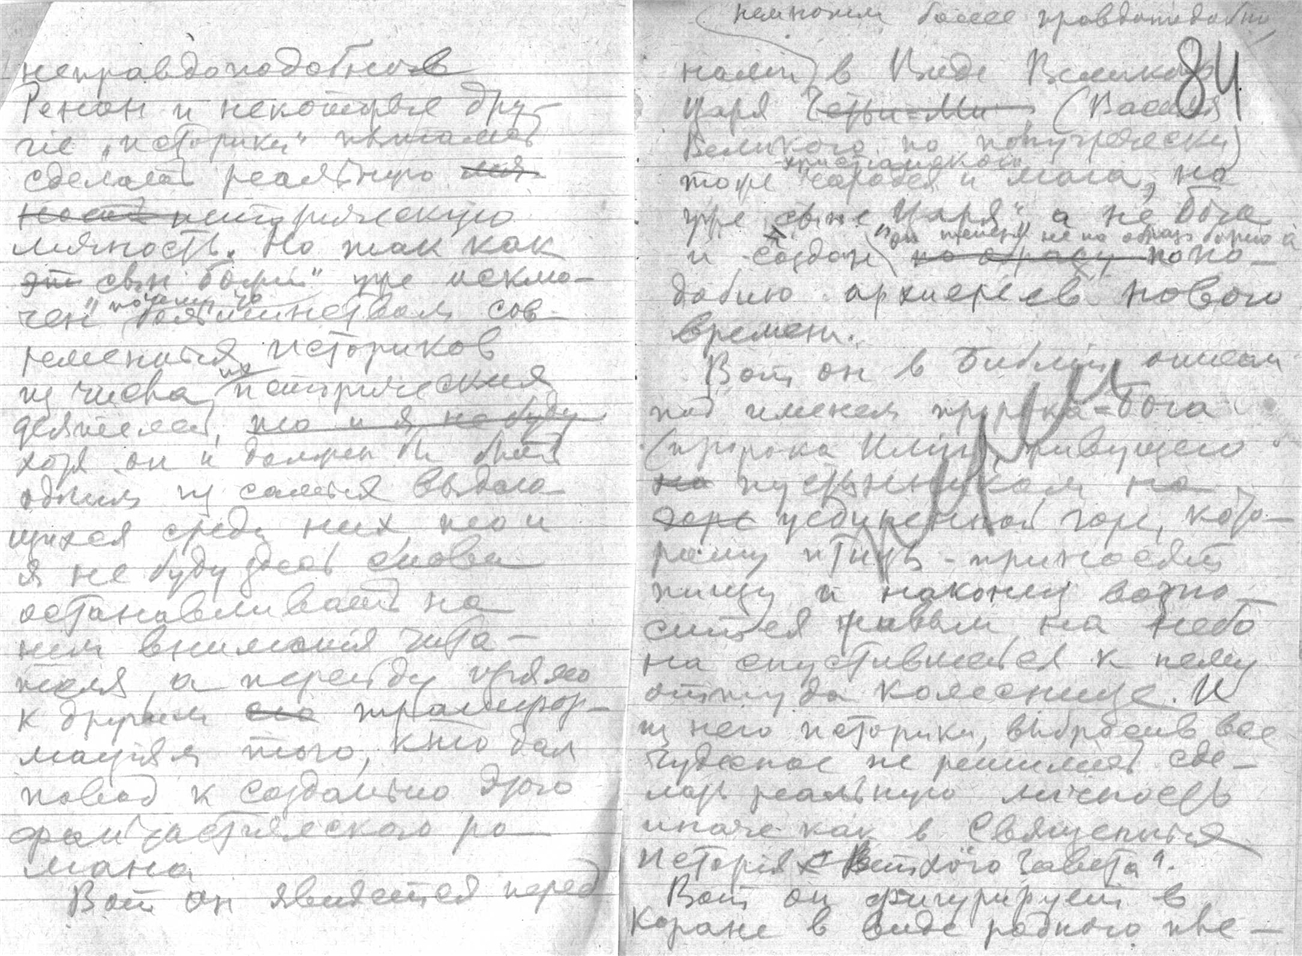 неправдоподобное
Ренан и некоторые дру-
гие „историки“ пытались
сделать реальную
историческую
личность. Но так как
эт сын божий“ уже исклю-
чен почему то большинством сов-
ременных историков
из числа их исторических
деятелей, то и я не буду
хотя он и должен бы быть
одним из самых выдаю-
щихся среди них, то и
я не буду здесь снова
останавливать на
нем внимания чита-
теля, а перейду прямо
к другим его трансфор-
мациям того, кто дал
повод к созданию этого
фантастического ро-
мана
Вот он является перед
немножко более правдоподобно
84
нами в виде Великого
царя Четьи-Ми (Василия
Великого по полугречески)
христианского
тоже чародея и мага, но
уже „сына Царя“, а не бога
он теперь не по образу божию а
и создан по образу по по-
добию архиереев нового
времени.
Вот он в Библии описан
под именем пророка-бога
(пророка Илии, живущего
на пустынником на
горе уединенной горе, кото-
рому птицы приносят
пищу и наконец возно-
сится живым на небо
на спустившейся к нему
оттуда колеснице. И
из него историки, выбросив все
чудесное не решились сде-
лать реальную личность
иначе как в Священных
История Ветхого Завета“.
Вот он фигурирует в
Коране в виде